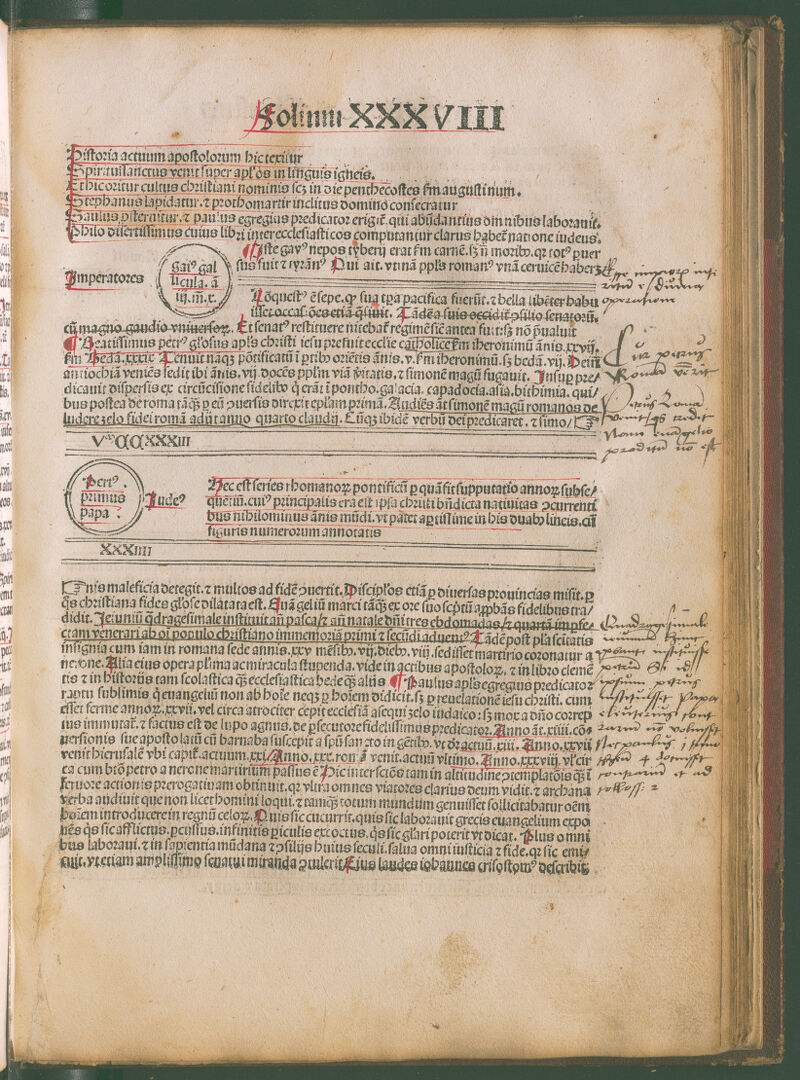 Foliuʒ XXXVIII
Historia actuum apostolorum hic texitur
Spiritussanctus venit super apl'os in linguis igneis.
Et hic oritur cultus christiani nominis scꝫ in die penthecostes ẜm augustinum.
Stephanus lapidatur. ⁊ prothomartir inclitus domino consecratur
Saulus ꝓsternitur. ⁊ paulus egregius predicator erigit̃. qui abũdantius omnibus laborauit.
Philo disertissimus cuius libri inter ecclesiasticos computantur clarus habet̃ natione iudeus.
Imperatores
gaiꝰ gal
licula. ã
iij. m̃. x.
¶ Iste gayꝰ nepos tyberij erat ẜm carnẽ. sꝫ ñ moribꝰ. qꝛ totꝰ puer
sus fuit ⁊ tyrãnꝰ Qui ait. vtinã ppl's romanꝰ vnã ceruicẽ haberꝫ
Cõquestꝰ ẽ sepe. ꝙ sua tp̃a pacifica fuerũt. ⁊ bella libẽter habu
isset occasiões etiã q̃siuit. Tãdẽ a suis occidit̃ ꝯsilio senatorũ.
cũ magno gaudio vniuersoꝝ. Et senatꝰ restituere nitebat̃ regimẽ sicẽ antea fuit: sꝫ nõ p̃ualuit
¶ Beatissimus petrꝰ gl'osus apl's christi iesu prefuit ecclie catholice ẜm iheronimũ ãnis. xxvij.
ẜm Bedã. xxxix Tenuit naqꝫ põtificatũ ĩ ꝑtibꝰ oriẽtis ãnis. v. ẜm iheronimũ. sꝫ bedã. vij. Deiñ
antiochiã veniẽs sedit ibi ãnis. vij docẽs pp̃lm viã ṽitatis. ⁊ simonẽ magũ fugauit. Insuꝑ pre/
dicauit dispersis ex circũcisione fidelibꝰ q̃ erãt ĩ pontho. galacia. capadocia. asia. bithimia. qui/
bus postea de roma tãqꝫ ꝑ eũ ꝯuersis direxit ep̃lam primã. Audiẽs aũt simonẽ magũ romanos de
ludere zelo fidei romã adijt anno quarto claudij. Cũqꝫ ibidẽ verbũ dei predicaret. ⁊ simo/
XXXIIII
Petrꝰ
primus
papa.
Iudeꝰ
Hec est series rhomanoꝝ pontificũ ꝑ quã fit supputatio annoꝝ subse/
quentiũ. cuiꝰ principalis era est ip̃sa christi bñdicta natiuitas ꝯcurrenti
bus nihilominus ãnis mũdi. vt patet aꝑtissime in his duabꝰ lineis. cũ
figuris numerorum annotatis
nis maleficia detegit. ⁊ multos ad fidẽ ꝯuertit. Discipl'os etiã ꝑ diuersas prouincias misit. ꝑ
q̃s christiana fides gl'ose dilatata est. Euãgeliũ marci tãqꝫ ex ore suo sc̃ptũ aꝓbãs fidelibus tra/
didit. Ieiuniũ q̃dragesimale instituit añ pasca/ ⁊ añ natale dñi tres ebdomadas/ ⁊ quartã imp̃fe/
ctam venerari ab oĩ populo christiano in memoriã primi ⁊ secũdi aduentꝰ Tãdẽ post p̃la sc̃itatis
insignia cum iam in romana sede annis. xxv mẽsibꝰ. vij. diebꝰ. viij. sedisset martirio coronatur a
nerone. Alia eius opera p̃lima ac miracula stupenda. vide in actibus apostoloꝝ. ⁊ in libro clemẽ
tis ⁊ in historijs tam scolastica qꝫ ecclesiastica hedeqꝫ alijs ¶ Paulus apl's egregius predicator
raptu sublimis q̃ euangeliũ non ab hoĩe neqꝫ ꝑ hoĩem didicit. sꝫ ꝑ reuelationẽ iesu christi. cum
esset ferme annoꝝ. xxvij. vel circa atrociter cepit ecclesiã asequi zelo iudaico: sꝫ mox a dño correp
tus immutat̃. ⁊ factus est de lupo agnus. de ꝑsecutore fidelissimus predicator. Anno ãt. xiiij. cõ
uersionis sue apostolatũ cũ barnaba suscepit a sp̃u sancto in gẽtibꝰ. vt dꝛ actuũ. xiij. Anno. xxvij
venit hierusalẽ vbi capit̃. actuum. xxi/ Anno. xxx. romã venit. actuũ vltimo. Anno. xxxviij. vl' cir
ca cum btõ petro a nerone martirium passus ẽ Hic inter sc̃tõs tam in altitudine ꝯtemplatõis qꝫ ĩ
feruore actionis prerogatinam obtinuit. qꝛ vltra omnes viatores clarius deum vidit. ⁊ archana
verba audiuit que non licet homini loqui. ⁊ tamqꝫ totum mundum genuisset sollicitabatur oẽm
hoĩem introducere in regnũ celoꝝ. Quis sic cucurrit. quis sic laborauit grecis euangelium expo
nẽs q̃s sic afflictus. ꝑcussus. infinitis ꝑiculis excoctus. q̃s sic gl'ari poterit vt dicat. Plus omni
bus laboraui. ⁊ in sapientia mũdana ⁊ ꝯsilijs huius seculi. salua omni iusticia ⁊ fide. qꝛ sic emi/
cuit. vt etiam amplissimo senatui miranda ꝯtulerit Eius laudes iohannes crisostomꝰ describit.